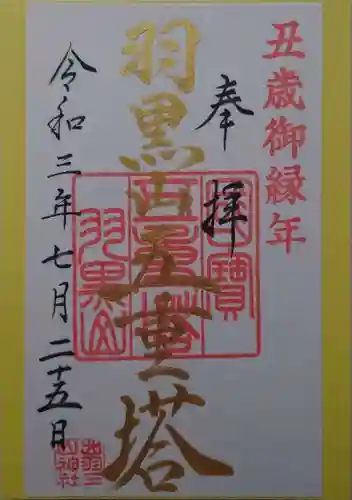 丑歳御縁年
奉拝
羽黒山五重塔
國寶
五重塔
羽黒山
令和三年七月二十五日
出羽三
山神社